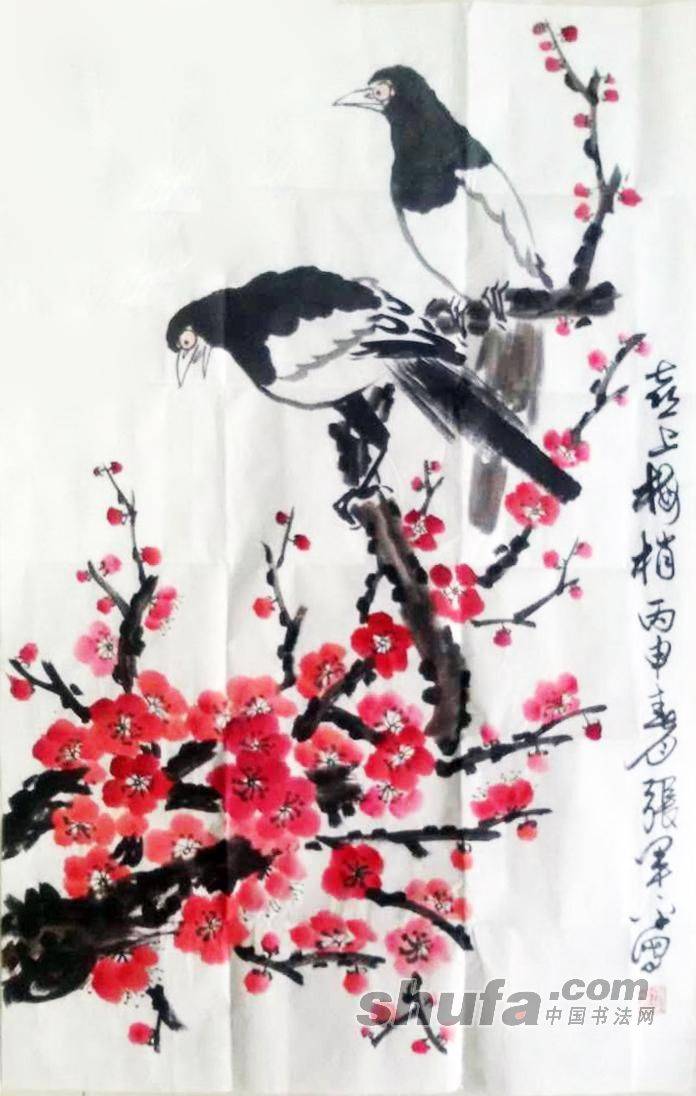 喜上梅梢 丙申春月 張軍 写
shufa.com
中国书法网